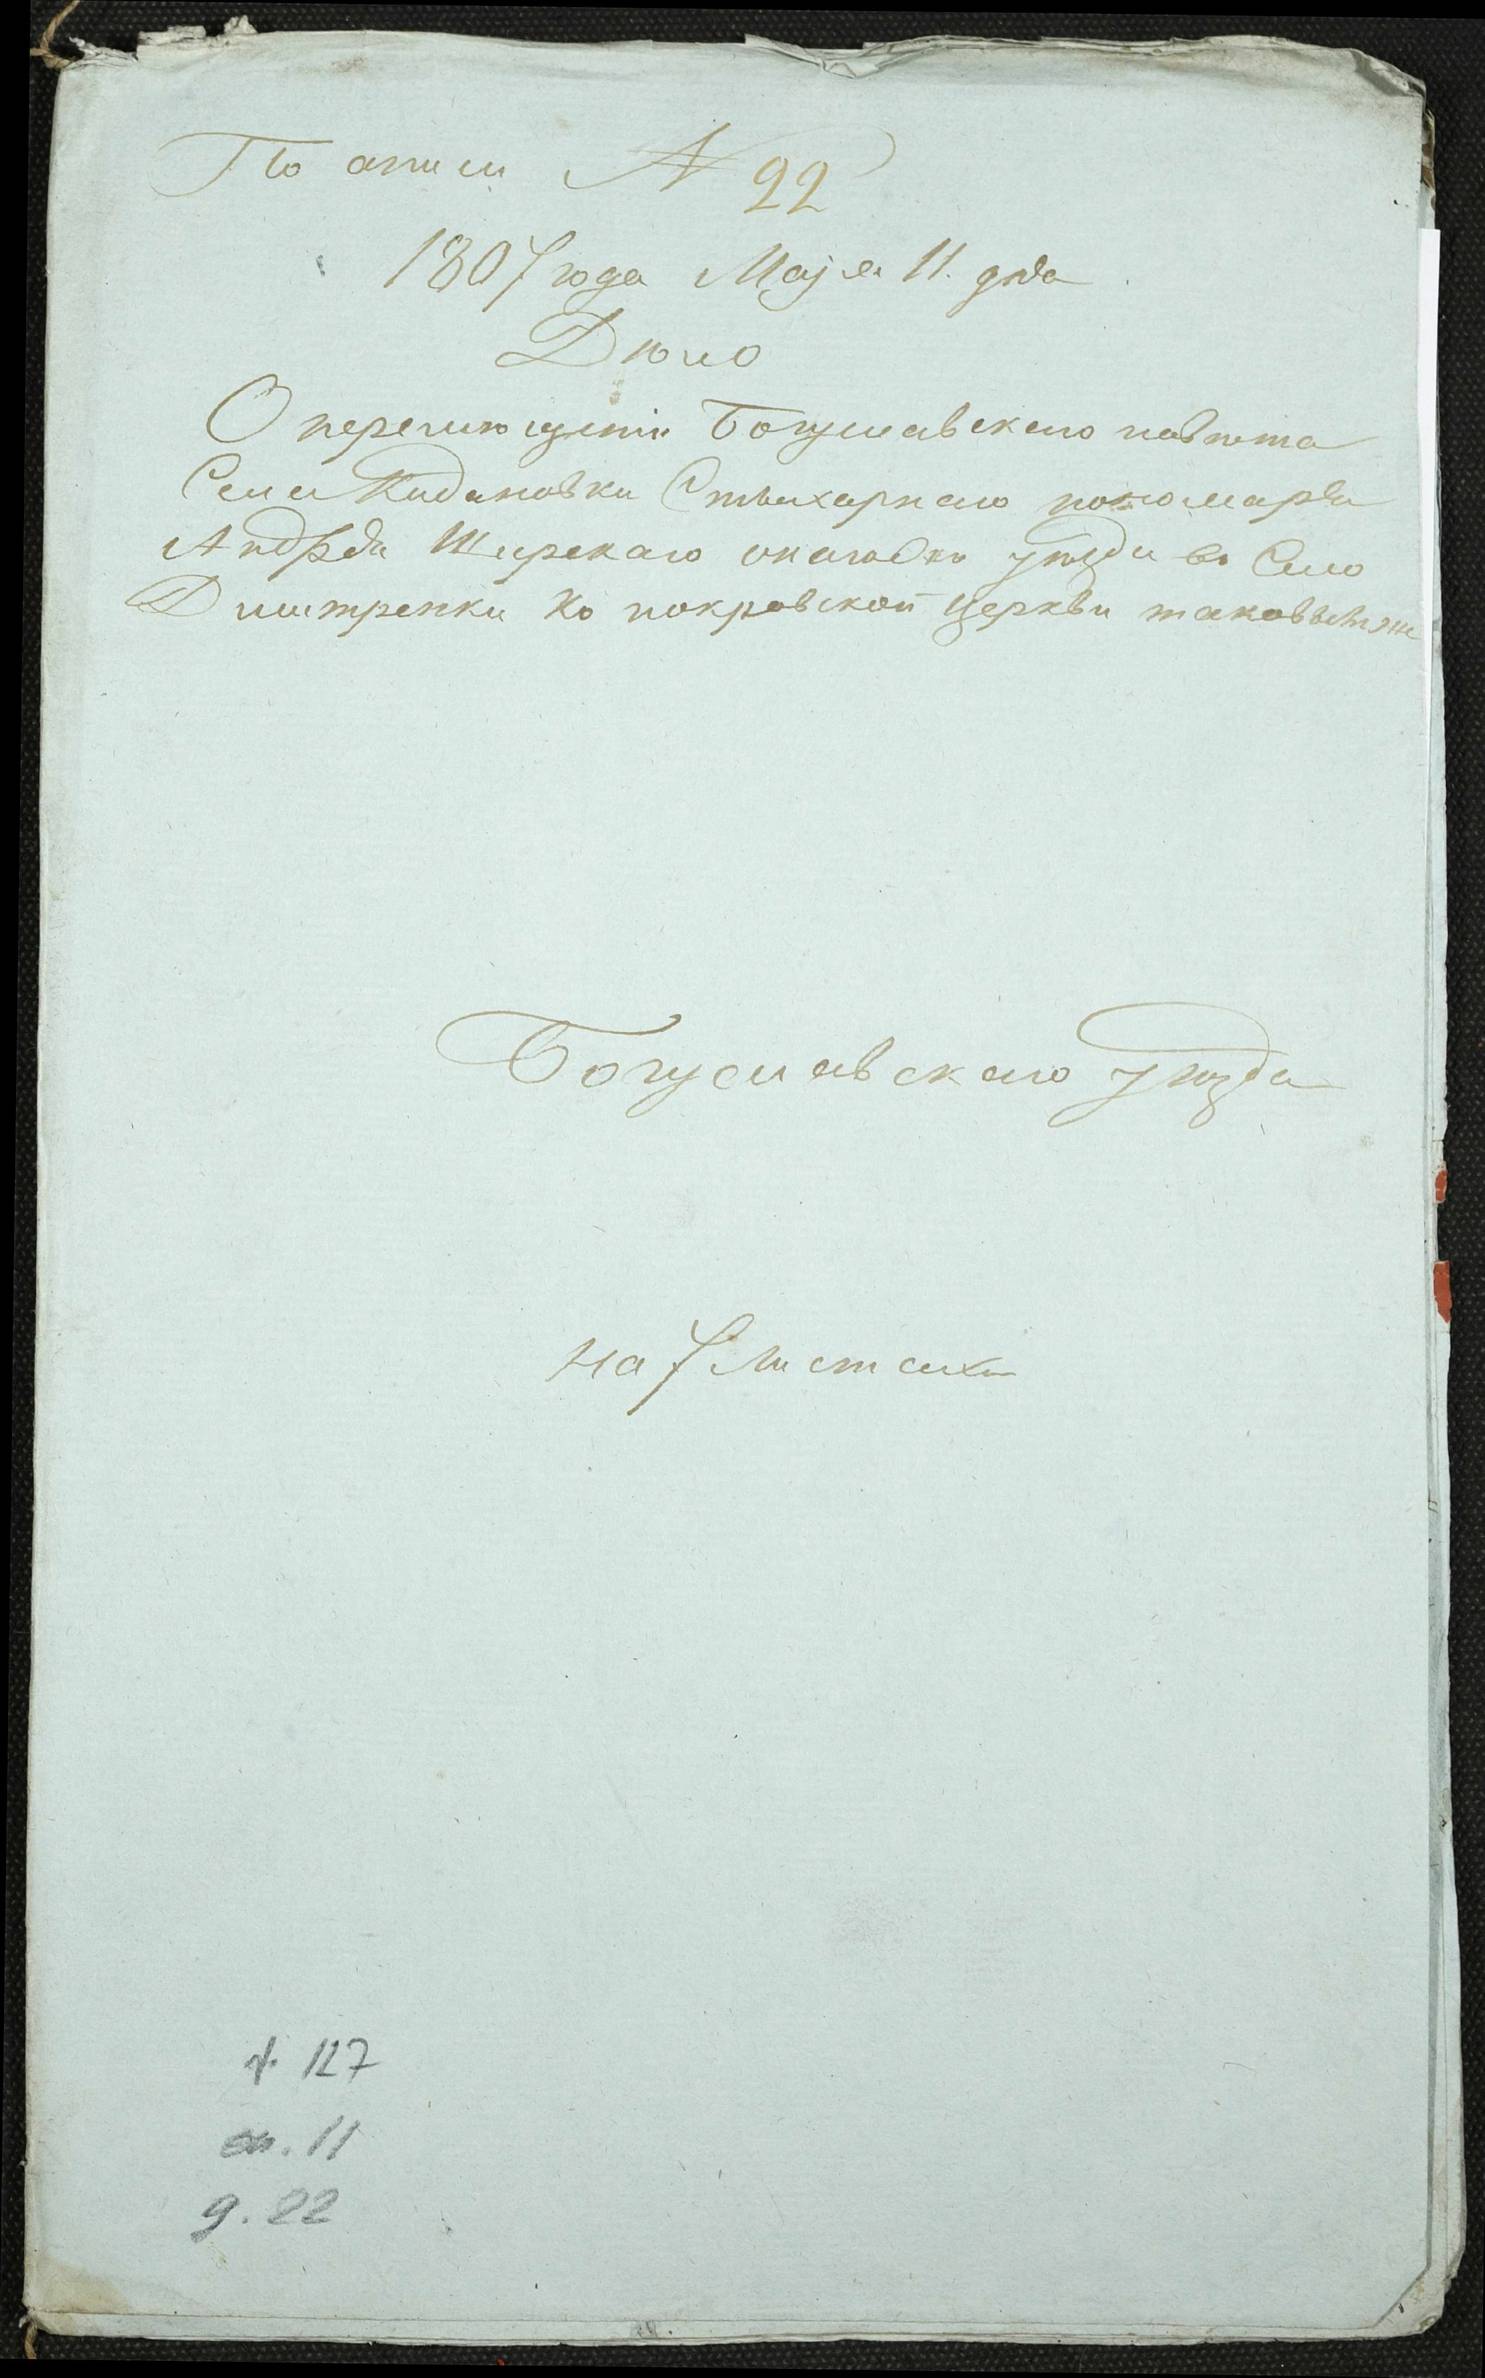 По описи № 22
1807 года Маja 11. дня
Дѣло
О перемѣщенiи Богуславскаго повѣта
Села Кидановки Стихарнаго пономаря
Андрѣя Ширскаго онагожъ уѣзда въ Село
Дмитренки Ко покровской церкви таковымже
Богуславскаго уѣзда
на 7 листахъ
ф. 127
оп. 11
д. 22